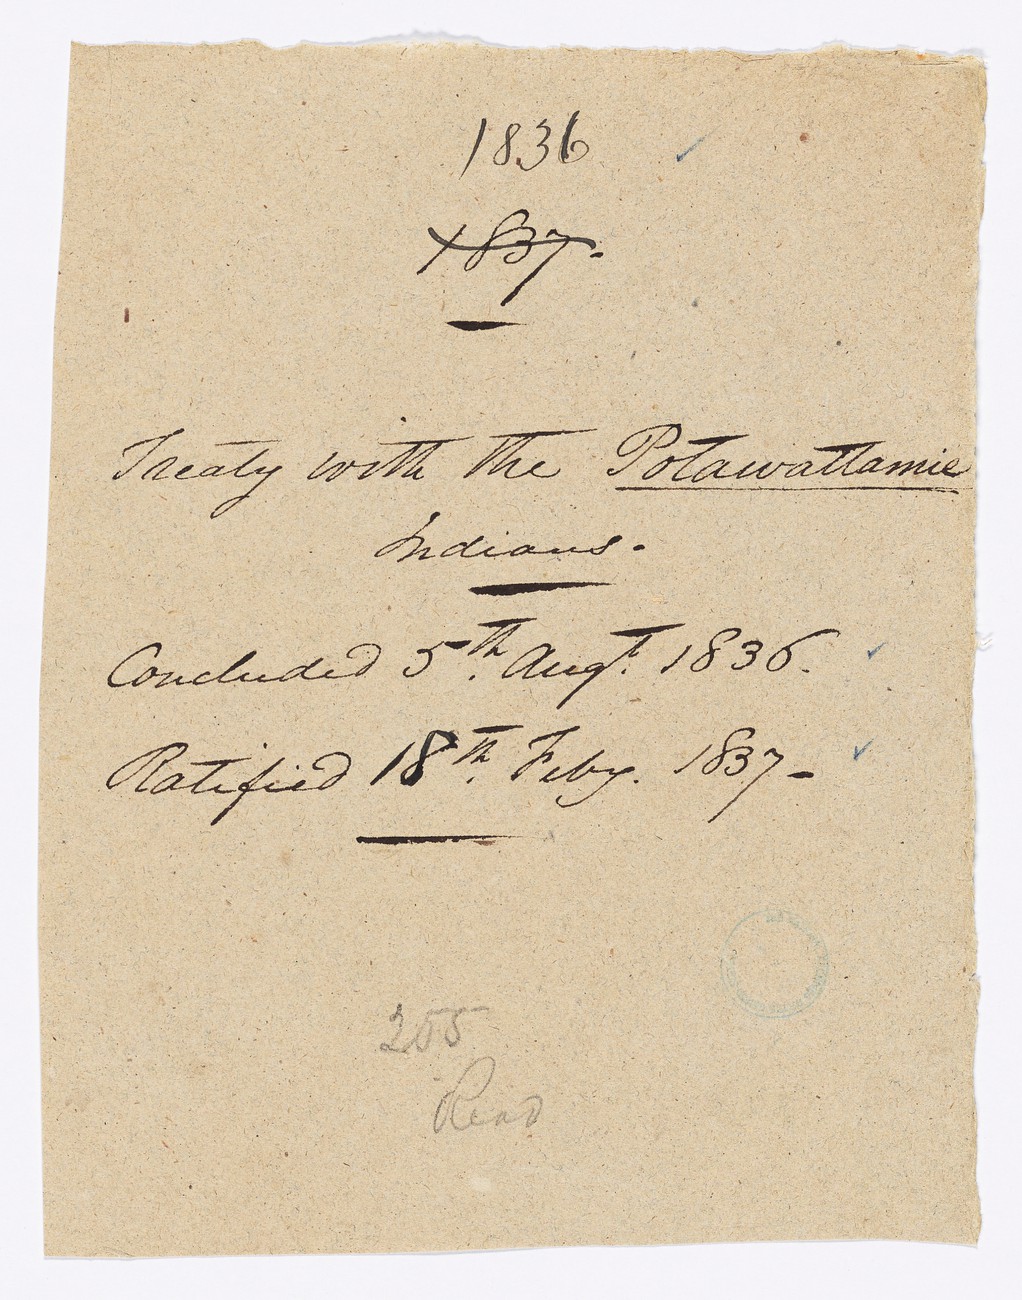 1836
1837.
Treaty with the Potawattamie
Indians.
Concluded 5th. Augt. 1836.
Ratified 18th. Feby. 1837-
255
Read